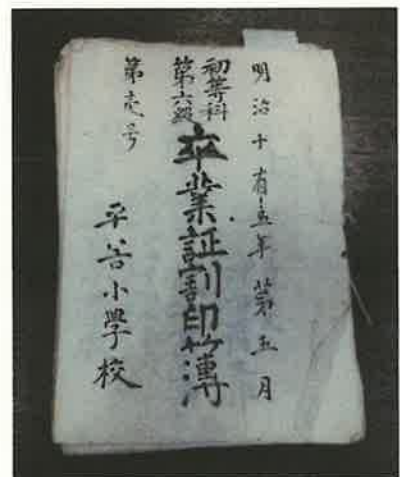 明治十有五年第五月
初等科
第六級
卒業証割印簿
第壱号
平谷小學校